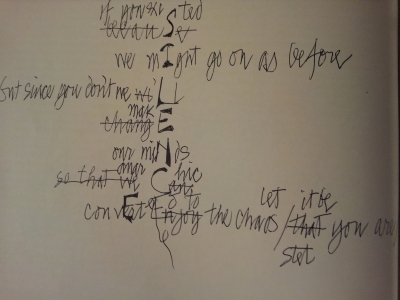 if you existed
because
we might go on as before
but since you don't we will
change mak E
our minds
so that we anar chic
convert E Enjoy to the chaos / that let it be you are
stet